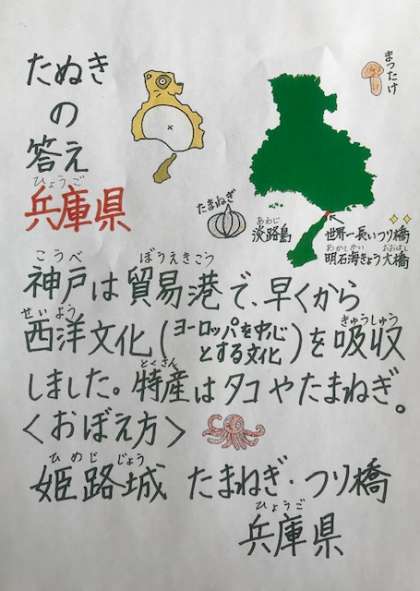 たぬき
の
答え
ひょうご
兵庫県
まつたけ
たまねぎ
あわじ
淡路島
世界一長いつり橋
あかし かい おおはし
明石海きょう大橋
こうべ ぼうえきこう
神戸は貿易港で、早くから
せいよう きゅうしゅう
西洋文化(ヨーロッパを中心とする文化)を吸収
とくさん
しました。特産はタコやたまねぎ。
〈おぼえ方〉
ひめじ じょう
姫路城 たまねぎ・つり橋
ひょうご
兵庫県